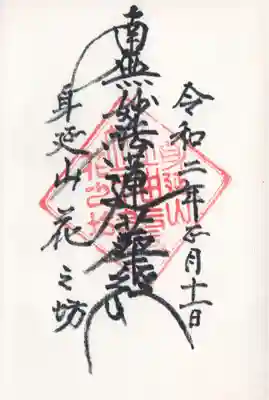 令和二年三月十一日
南無妙法蓮華経
身延山花之坊